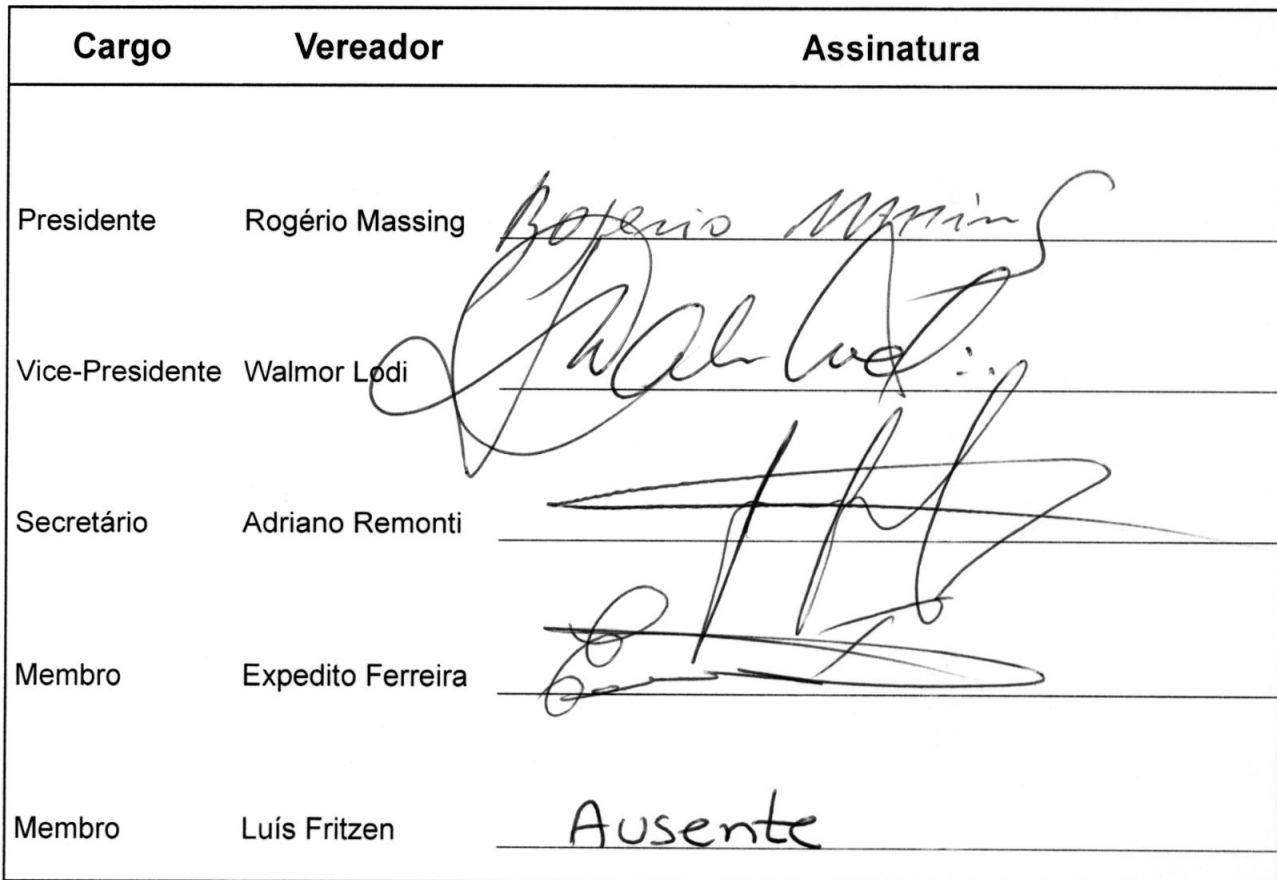 Cargo Vereador Assinatura
Presidente Rogério Massing Rogerio Massing
Vice-Presidente Walmor Lodi Walmor Lodi
Secretário Adriano Remonti
Membro Expedito Ferreira
Membro Luís Fritzen Ausente